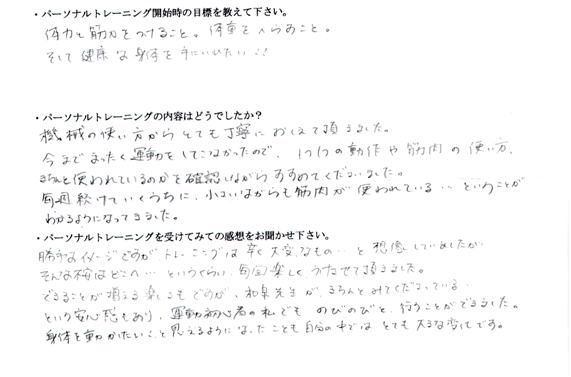 ・パーソナルトレーニング開始時の目標を教えて下さい。
体力と筋力をつけること。体重をへらすこと。
そして健康な身体を手にいれたい!!
・パーソナルトレーニングの内容はどうでしたか？
機械の使い方からとても丁寧におしえて頂きました。
今までまったく運動をしてこなかったので、1つ1つの動作や筋肉の使い方、
きちんと使われているのかを確認しながらすすめてくださいました。
毎週続けていくうちに、小さいながらも筋肉が使われている…ということが
わかるようになってきました。
・パーソナルトレーニングを受けてみての感想をお聞かせ下さい。
勝手なイメージですが、トレーニングは辛く大変なもの…と想像していましたが
そんな不安はどこへ…というくらい、毎回楽しくうけさせて頂きました。
できることが増える楽しさもですが、和泉先生が、きちんとみてくださっている…
という安心感もあり、運動初心者の私でものびのびと、行うことができました。
身体を動かしたい、と思えるようになったことも自分の中ではとても大きな変化です。